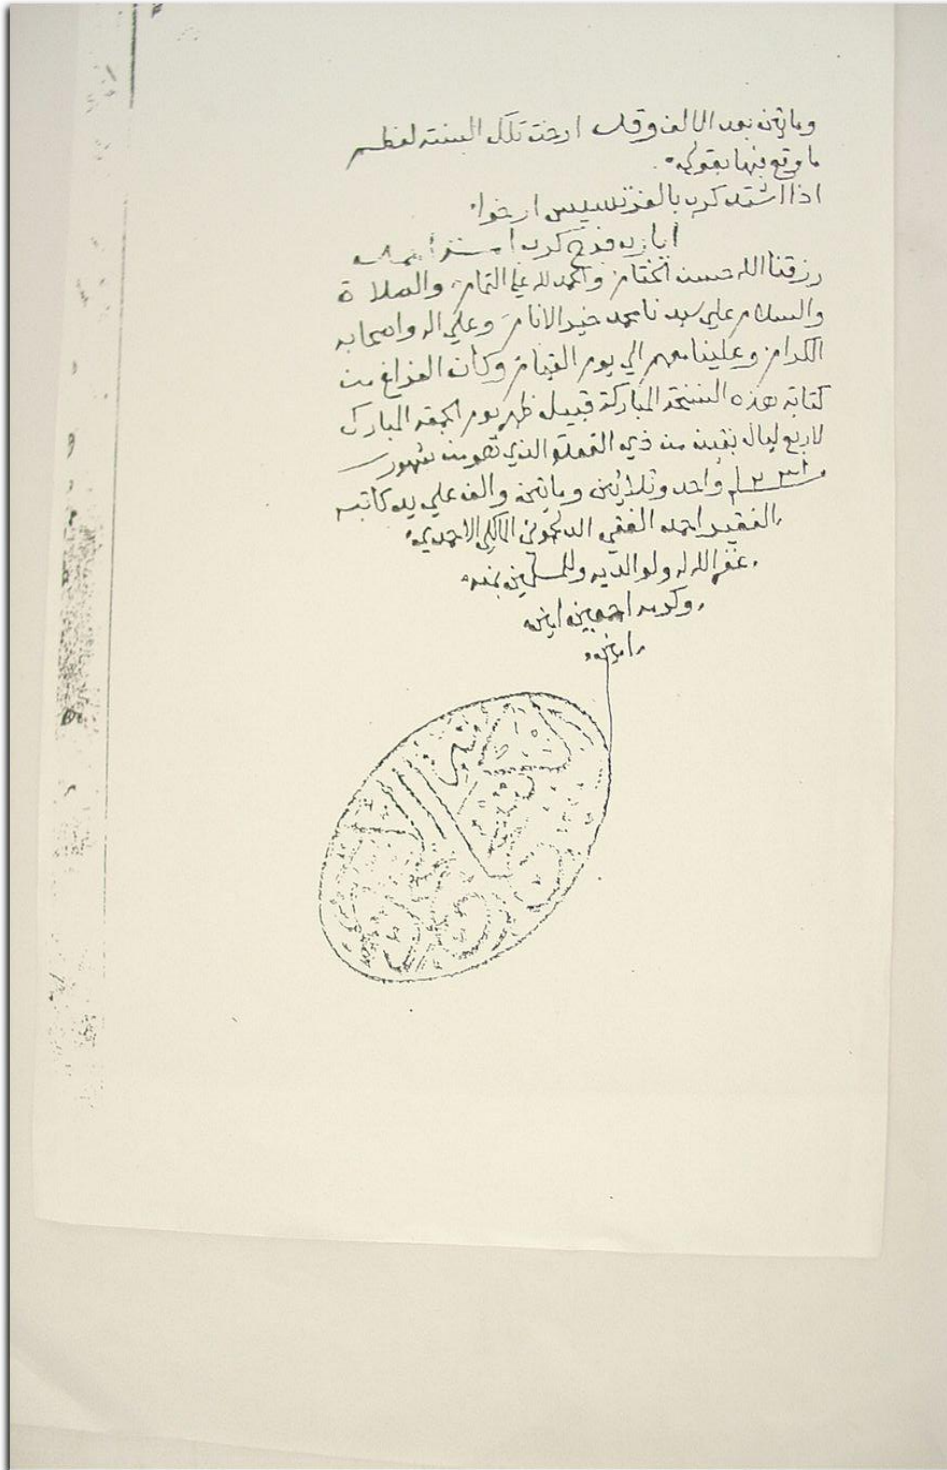 وماتين بعد الالف وقلت ارخت تلك السنة لعظم
ما وقع فيها بقولي
اذا اشتد كرب بالفرنسيس ارخوا
فرج كرب
رزقنا الله حسن الختام والحمد لله علي التمام والصلاة
والسلام علي سيدنا محمد خير الانام وعلي اله واصحابه
الكرام وعلينا معهم الي يوم القيام وكان الفراغ من
كتابة هذه النسخة المباركة قبيل ظهر يوم الجمعة المبارك
لاربع ليال بقين من ذي القعدة الذي هو من شهور
١٢٣١ واحد وثلاثين وماتين والف علي يد كاتبه
الفقير احمد الفقي المالكي الاحمدي
غفر الله له ولوالديه وللمسلمين بمنه
وكرمه اجمعين امين
امين